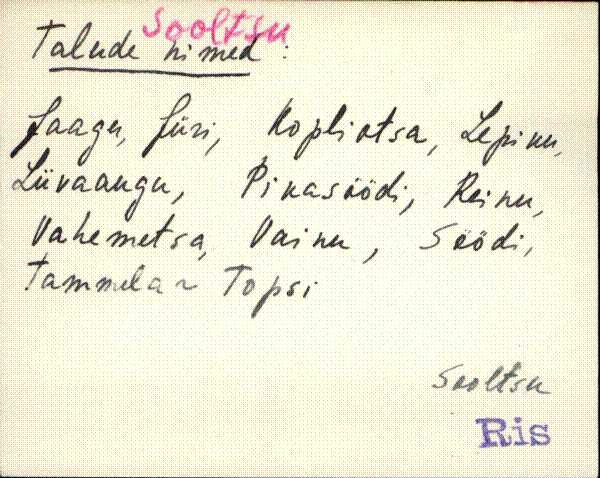 Sooltsu
Talude nimed:
Jaagu, Jüri, Kopliotsa, Lepinu,
Liivaaugu, Pikasöödi, Reinu,
Vahemetsa, Vainu, Söödi,
Tammela ~ Topsi
Sooltsu
Ris